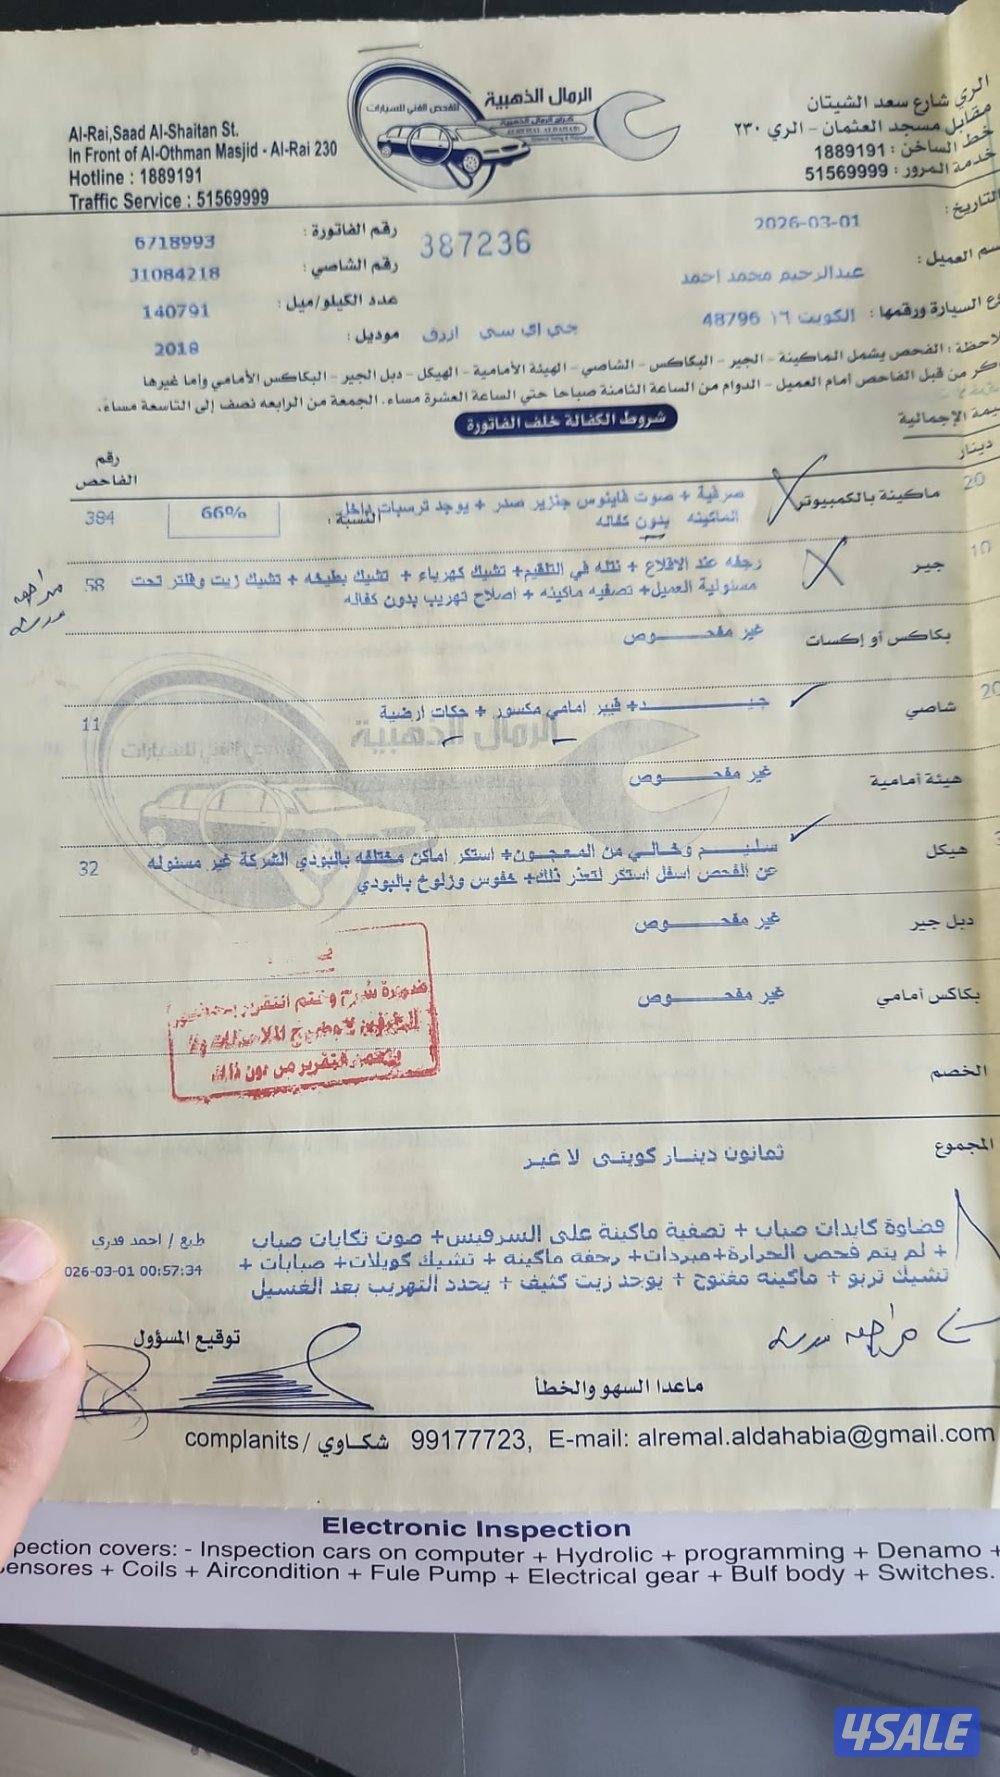 الرمال الذهبية
للفحص الفني للسيارات
كراج الرمال الذهبية
Al-Rai,Saad Al-Shaitan St.
In Front of Al-Othman Masjid - Al-Rai 230
Hotline : 1889191
Traffic Service : 51569999
الري شارع سعد الشيتان
مقابل مسجد العثمان - الري ٢٣٠
خط الساخن : 1889191
خدمة المرور : 51569999
التاريخ: 2026-03-01
387236
رقم الفاتورة : 6718993
سم العميل : عبدالرحيم محمد احمد
رقم الشاصي : J1084218
ع السيارة ورقمها : الكويت ١٦ 48796 جي اي سي ازرق
عدد الكيلو/ميل : 140791
موديل : 2018
لاحظة : الفحص يشمل الماكينة - الجير - البكاكس - الشاصي - الهيئة الأمامية - الهيكل - دبل الجير - البكاكس الأمامي وأما غيرها
كر من قبل الفاحص أمام العميل - الدوام من الساعة الثامنة صباحا حتى الساعة العشرة مساء. الجمعة من الرابعه نصف إلى التاسعة مساء.
شروط الكفالة خلف الفاتورة
يمة الإجمالية
دينار
رقم الفاحص
20 ماكينة بالكمبيوتر صرفية + صوت فاينوس جنزير صدر + يوجد ترسبات داخل
الماكينه بدون كفاله
النسبة : 66% 384
10 جير رجفه عند الاقلاع + نتله في التلقيم+ تشيك كهرباء + تشيك بطيخه + تشيك زيت وفلتر تحت 58
مسئولية العميل+ تصفيه ماكينه + اصلاح تهريب بدون كفاله
مراجعه
بكاكس أو إكسات غير مفحـــــوص
20 شاصي جيـــــد+ فيبر امامي مكسور + حكات ارضية 11
هيئة أمامية غير مفحـــــوص
هيكل سليـــم وخـــالي من المعجـــون+ استكر اماكن مختلفه بالبودي الشركة غير مسئوله 32
عن الفحص اسفل استكر لتعذر ذلك+ خفوس وزلوخ بالبودي
دبل جير غير مفحـــــوص
بكاكس أمامي غير مفحـــــوص
الخصم
المجموع ثمانون دينـــار كويتي لا غيـــر
فضاوة كايدات صباب + تصفية ماكينة على السرفيس+ صوت تكايات صباب
+ لم يتم فحص الحرارة+مبردات+ رجفه ماكينه + تشيك كويلات+ صبابات +
تشيك تربو + ماكينه مفتوح + يوجد زيت كثيف + يحدد التهريب بعد الغسيل
طبع / احمد قدري
026-03-01 00:57:34
مراجعه
توقيع المسؤول
ماعدا السهو والخطأ
complanits / شكـاوي 99177723, E-mail: alremal.aldahabia@gmail.com
Electronic Inspection
pection covers: - Inspection cars on computer + Hydrolic + programming + Denamo +
ensores + Coils + Aircondition + Fule Pump + Electrical gear + Bulf body + Switches.
4SALE